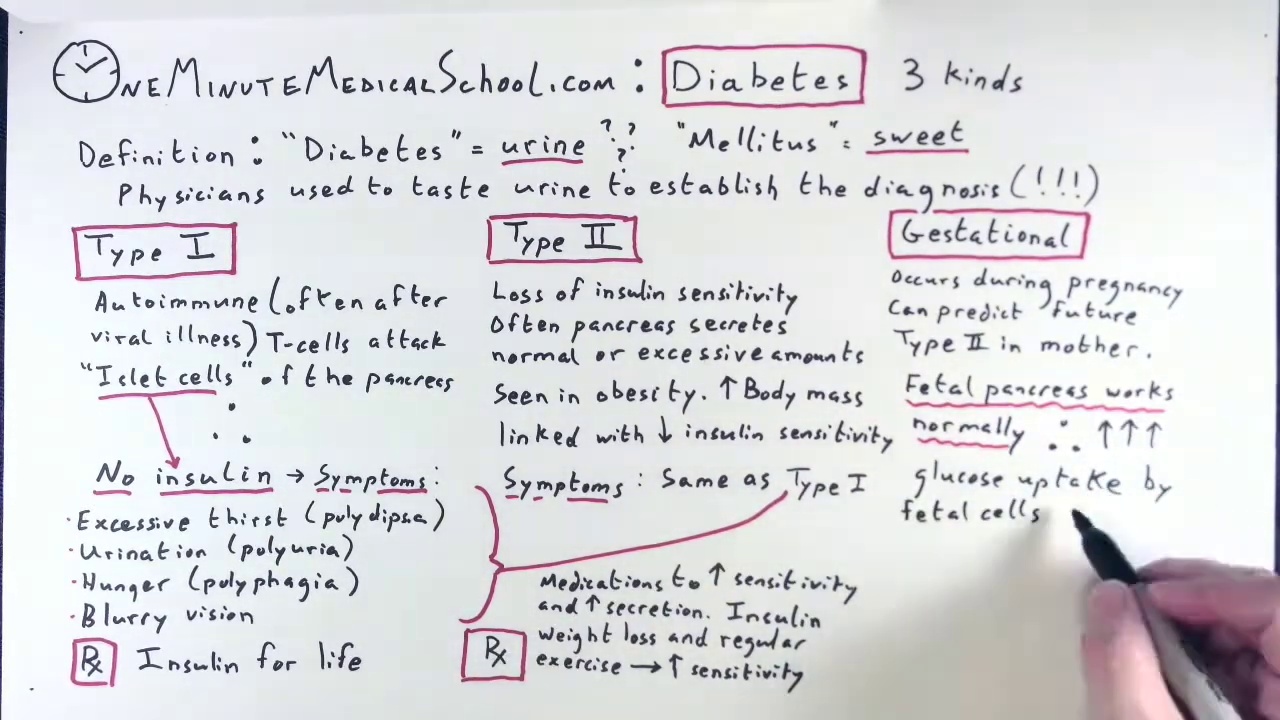 OneMinuteMedicalSchool.com : Diabetes 3 kinds
Definition : "Diabetes" = urine ??? "Mellitus" = sweet
Physicians used to taste urine to establish the diagnosis (!!!)
Type I
Autoimmune (often after
viral illness) T-cells attack
"Islet cells" of the pancreas
∴
No insulin → Symptoms :
· Excessive thirst (polydipsia)
· Urination (polyuria)
· Hunger (polyphagia)
· Blurry vision
Rx Insulin for life
Type II
Loss of insulin sensitivity
Often pancreas secretes
normal or excessive amounts
Seen in obesity. ↑ Body mass
linked with ↓ insulin sensitivity
Symptoms : Same as Type I
Rx
Medications to ↑ sensitivity
and ↑ secretion. Insulin
Weight loss and regular
exercise → ↑ sensitivity
Gestational
Occurs during pregnancy
Can predict future
Type II in mother.
Fetal pancreas works
normally ∴ ↑↑↑
glucose uptake by
fetal cells